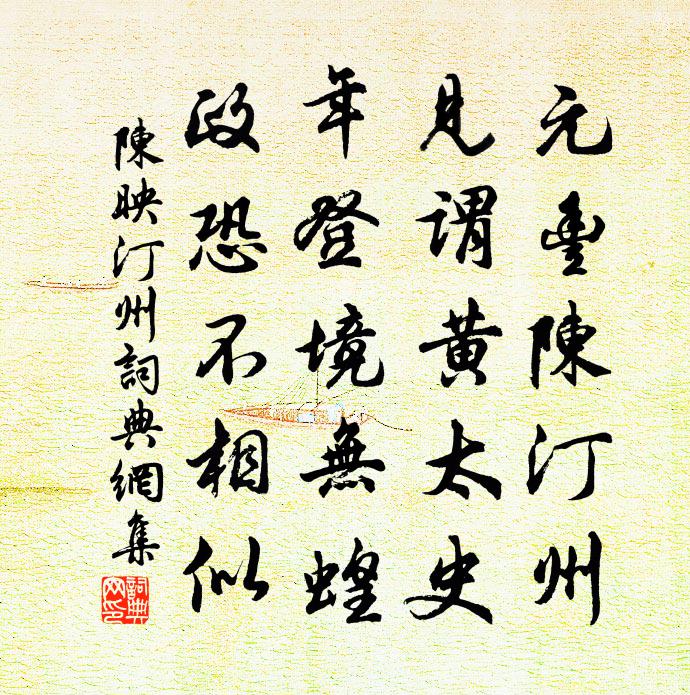 元豊陳汀州
見謂黃太史
年登境無蝗
政恐不相似
陳映汀州詞典網集
詞典網印